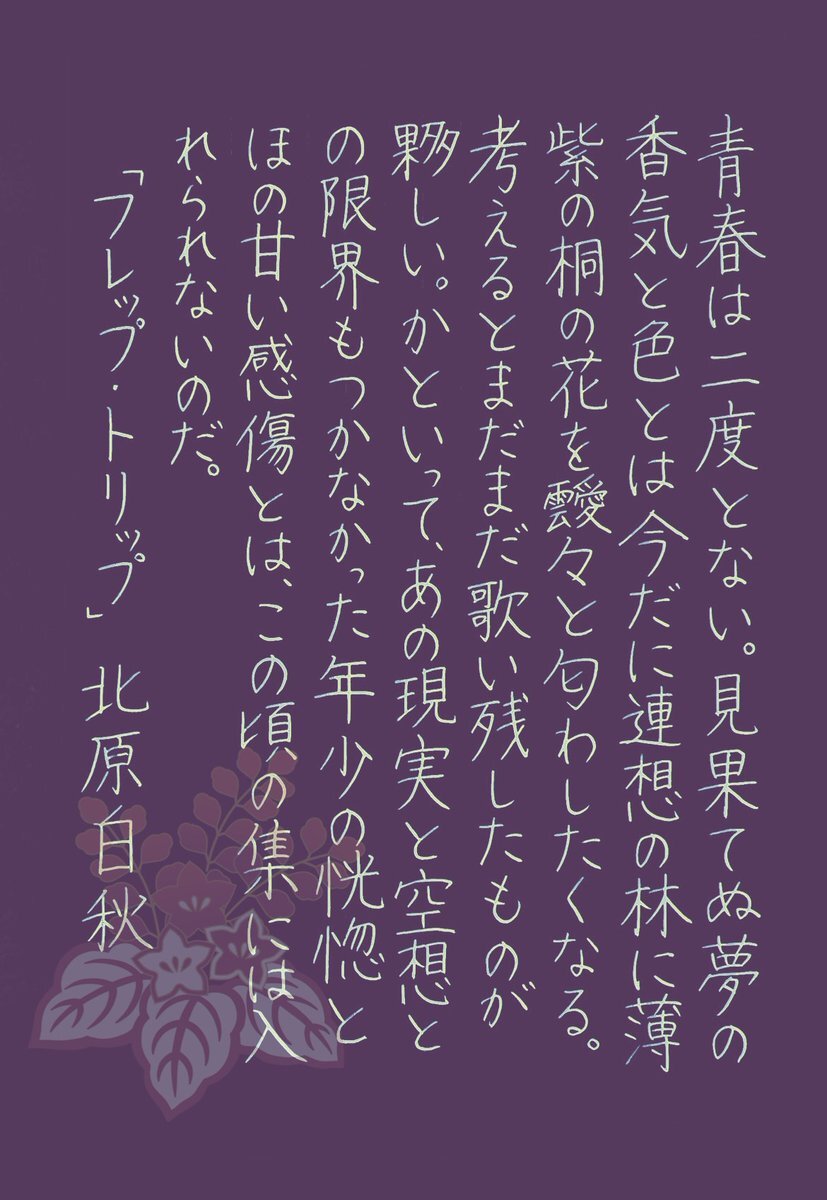 青春は二度とない。見果てぬ夢の
香気と色とは今だに連想の林に薄
紫の桐の花を靉々と匂わしたくなる。
考えるとまだまだ歌い残したものが
夥しい。かといって、あの現実と空想と
の限界もつかなかった年少の恍惚と
ほの甘い感傷とは、この頃の集には入
れられないのだ。
「フレップ・トリップ」 北原白秋